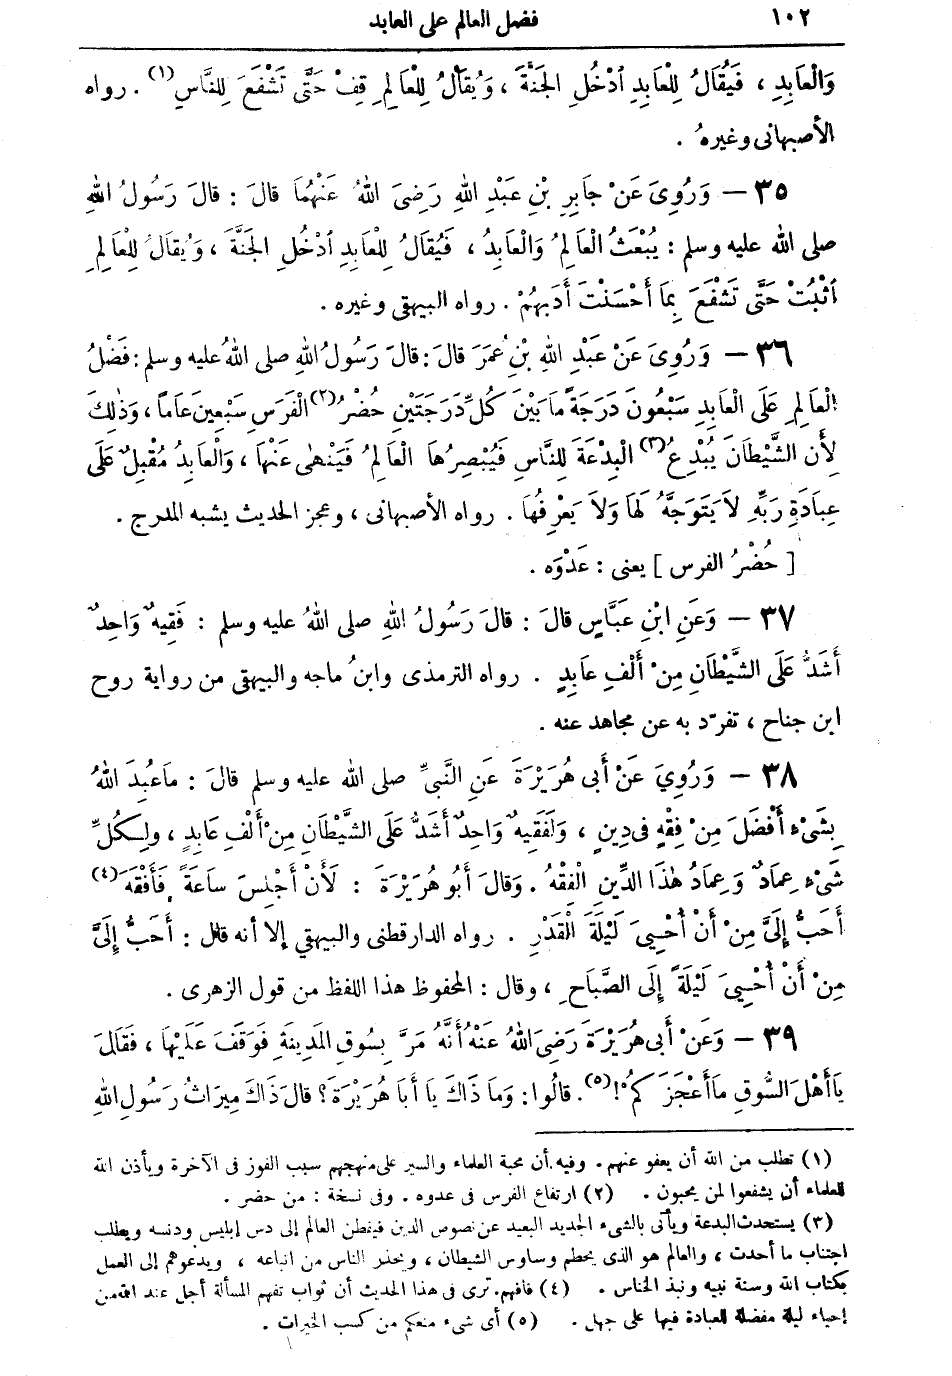 ١٠٢ فضل العالم على العابد
وَالْعَابِدِ ، فَيُقَالُ لِلْعَابِدِ ٱدْخُلِ الْجَنَّةَ ، وَيُقَالُ لِلْعَالِمِ قِفْ حَتَّى تَشْفَعَ لِلنَّاسِ (١) . رواه
الأصبهانى وغيرهُ .
٣٥ — وَرُوِىَ عَنْ جَابِرِ بْنِ عَبْدِ اللهِ رَضِىَ اللهُ عَنْهُمَا قالَ : قالَ رَسُولُ اللهِ
صلى الله عليه وسلم : يُبْعَثُ الْعَالِمُ وَالْعَابِدُ ، فَيُقَالُ لِلْعَابِدِ ٱدْخُلِ الْجَنَّةَ ، وَيُقَالُ لِلْعَالِمِ
ٱثْبُتْ حَتَّى تَشْفَعَ بِمَا أَحْسَنْتَ أَدَبَهُمْ . رواه البيهقى وغيره .
٣٦ — وَرُوِىَ عَنْ عَبْدِ اللهِ بْنِ عُمَرَ قالَ : قالَ رَسُولُ اللهِ صلى اللهُ عليه وسلم : فَضْلُ
الْعَالِمِ عَلَى الْعَابِدِ سَبْعُونَ دَرَجَةً مَا بَيْنَ كُلِّ دَرَجَتَيْنِ حُضْرُ (٢) الْفَرَسِ سَبْعِينَ عَاماً ، وَذٰلِكَ
لِأَن الشَّيْطَانَ يُبْدِعُ (٣) الْبِدْعَةَ لِلنَّاسِ فَيُبْصِرُهَا الْعَالِمُ فَيَنْهٰى عَنْهَا ، وَالْعَابِدُ مُقْبِلٌ عَلَى
عِبَادَةِ رَبِّهِ لاَ يَتَوَجَّهُ لَهَا وَلاَ يَعْرِفُهَا . رواه الأصبهانى ، وعجز الحديث يشبه المدرج .
[ حُضْرُ الفرس ] يعنى : عَدْوَه .
٣٧ — وَعَنِ ابْنِ عَبَّاسٍ قالَ : قالَ رَسُولُ اللهِ صلى اللهُ عليه وسلم : فَقِيهٌ وَاحِدٌ
أَشَدُّ عَلَى الشَّيْطَانِ مِنْ أَلْفِ عَابِدٍ . رواه الترمذى وابنُ ماجه والبيهقى من رواية روح
ابن جناح ، تفرّد به عن مجاهد عنه .
٣٨ — وَرُوِيَ عَنْ أَبى هُرَيْرَةَ عَنِ النَّبِيِّ صلى الله عليه وسلم قالَ : مَا عُبِدَ اللهُ
بِشَىْءٍ أَفْضَلَ مِنْ فِقْهٍ فى دِينٍ ، وَلَفَقِيهٌ وَاحِدٌ أَشَدُّ عَلَى الشَّيْطَانِ مِنْ أَلْفِ عَابِدٍ ، ولِكُلِّ
شَىْءٍ عِمَادٌ وَعِمَادُ هٰذَا الدِّينِ الْفِقْهُ . وَقالَ أَبُو هُرَيْرَةَ : لَأَنْ أَجْلِسَ سَاعَةً فَأَفْقَهَ (٤)
أَحَبُّ إِلَىَّ مِنْ أَنْ أُحْيِىَ لَيْلَةَ الْقَدْرِ . رواه الدارقطنى والبيهقى إلا أنه قال : أَحَبُّ إِلَىَّ
مِنْ أَنْ أُحْيِىَ لَيْلَةً إِلَى الصَّبَاحِ ، وقال : المحفوظ هذا اللفظ من قول الزهرى .
٣٩ — وَعَنْ أَبى هُرَيْرَةَ رَضِىَ اللهُ عَنْهُ أَنَّهُ مَرَّ بِسُوقِ المَدِينَةِ فَوَقَفَ عَلَيْهَا ، فَقَالَ
يَا أَهْلَ السُّوقِ مَا أَعْجَزَكُمْ ! (٥) . قالُوا : وَمَا ذَاكَ يَا أَبَا هُرَيْرَةَ ؟ قالَ ذَاكَ مِيرَاثُ رَسُولِ اللهِ
(١) تطلب من الله أن يعفو عنهم . وفيه أن محبة العلماء والسير على منهجهم سبب الفوز فى الآخرة ويأذن الله
للعلماء أن يشفعوا لمن يحبون . (٢) ارتفاع الفرس فى عدوه . وفى نسخة : من حضر .
(٣) يستحدث البدعة ويأتى بالشىء الجديد البعيد عن نصوص الدين فيفطن العالم إلى دس إبليس ودنسه ويطلب
اجتناب ما أحدث ، والعالم هو الذى يحطم وساوس الشيطان ، ويحذر الناس من اتباعه ، ويدعوهم إلى العمل
بكتاب الله وسنة نبيه ونبذ الخناس . (٤) فافهم . ترى فى هذا الحديث أن ثواب تفهم المسألة أجل عند الله من
إحياء ليلة مفضلة للعبادة فيها على جهل . (٥) أى شىء منعكم من كسب الخيرات .